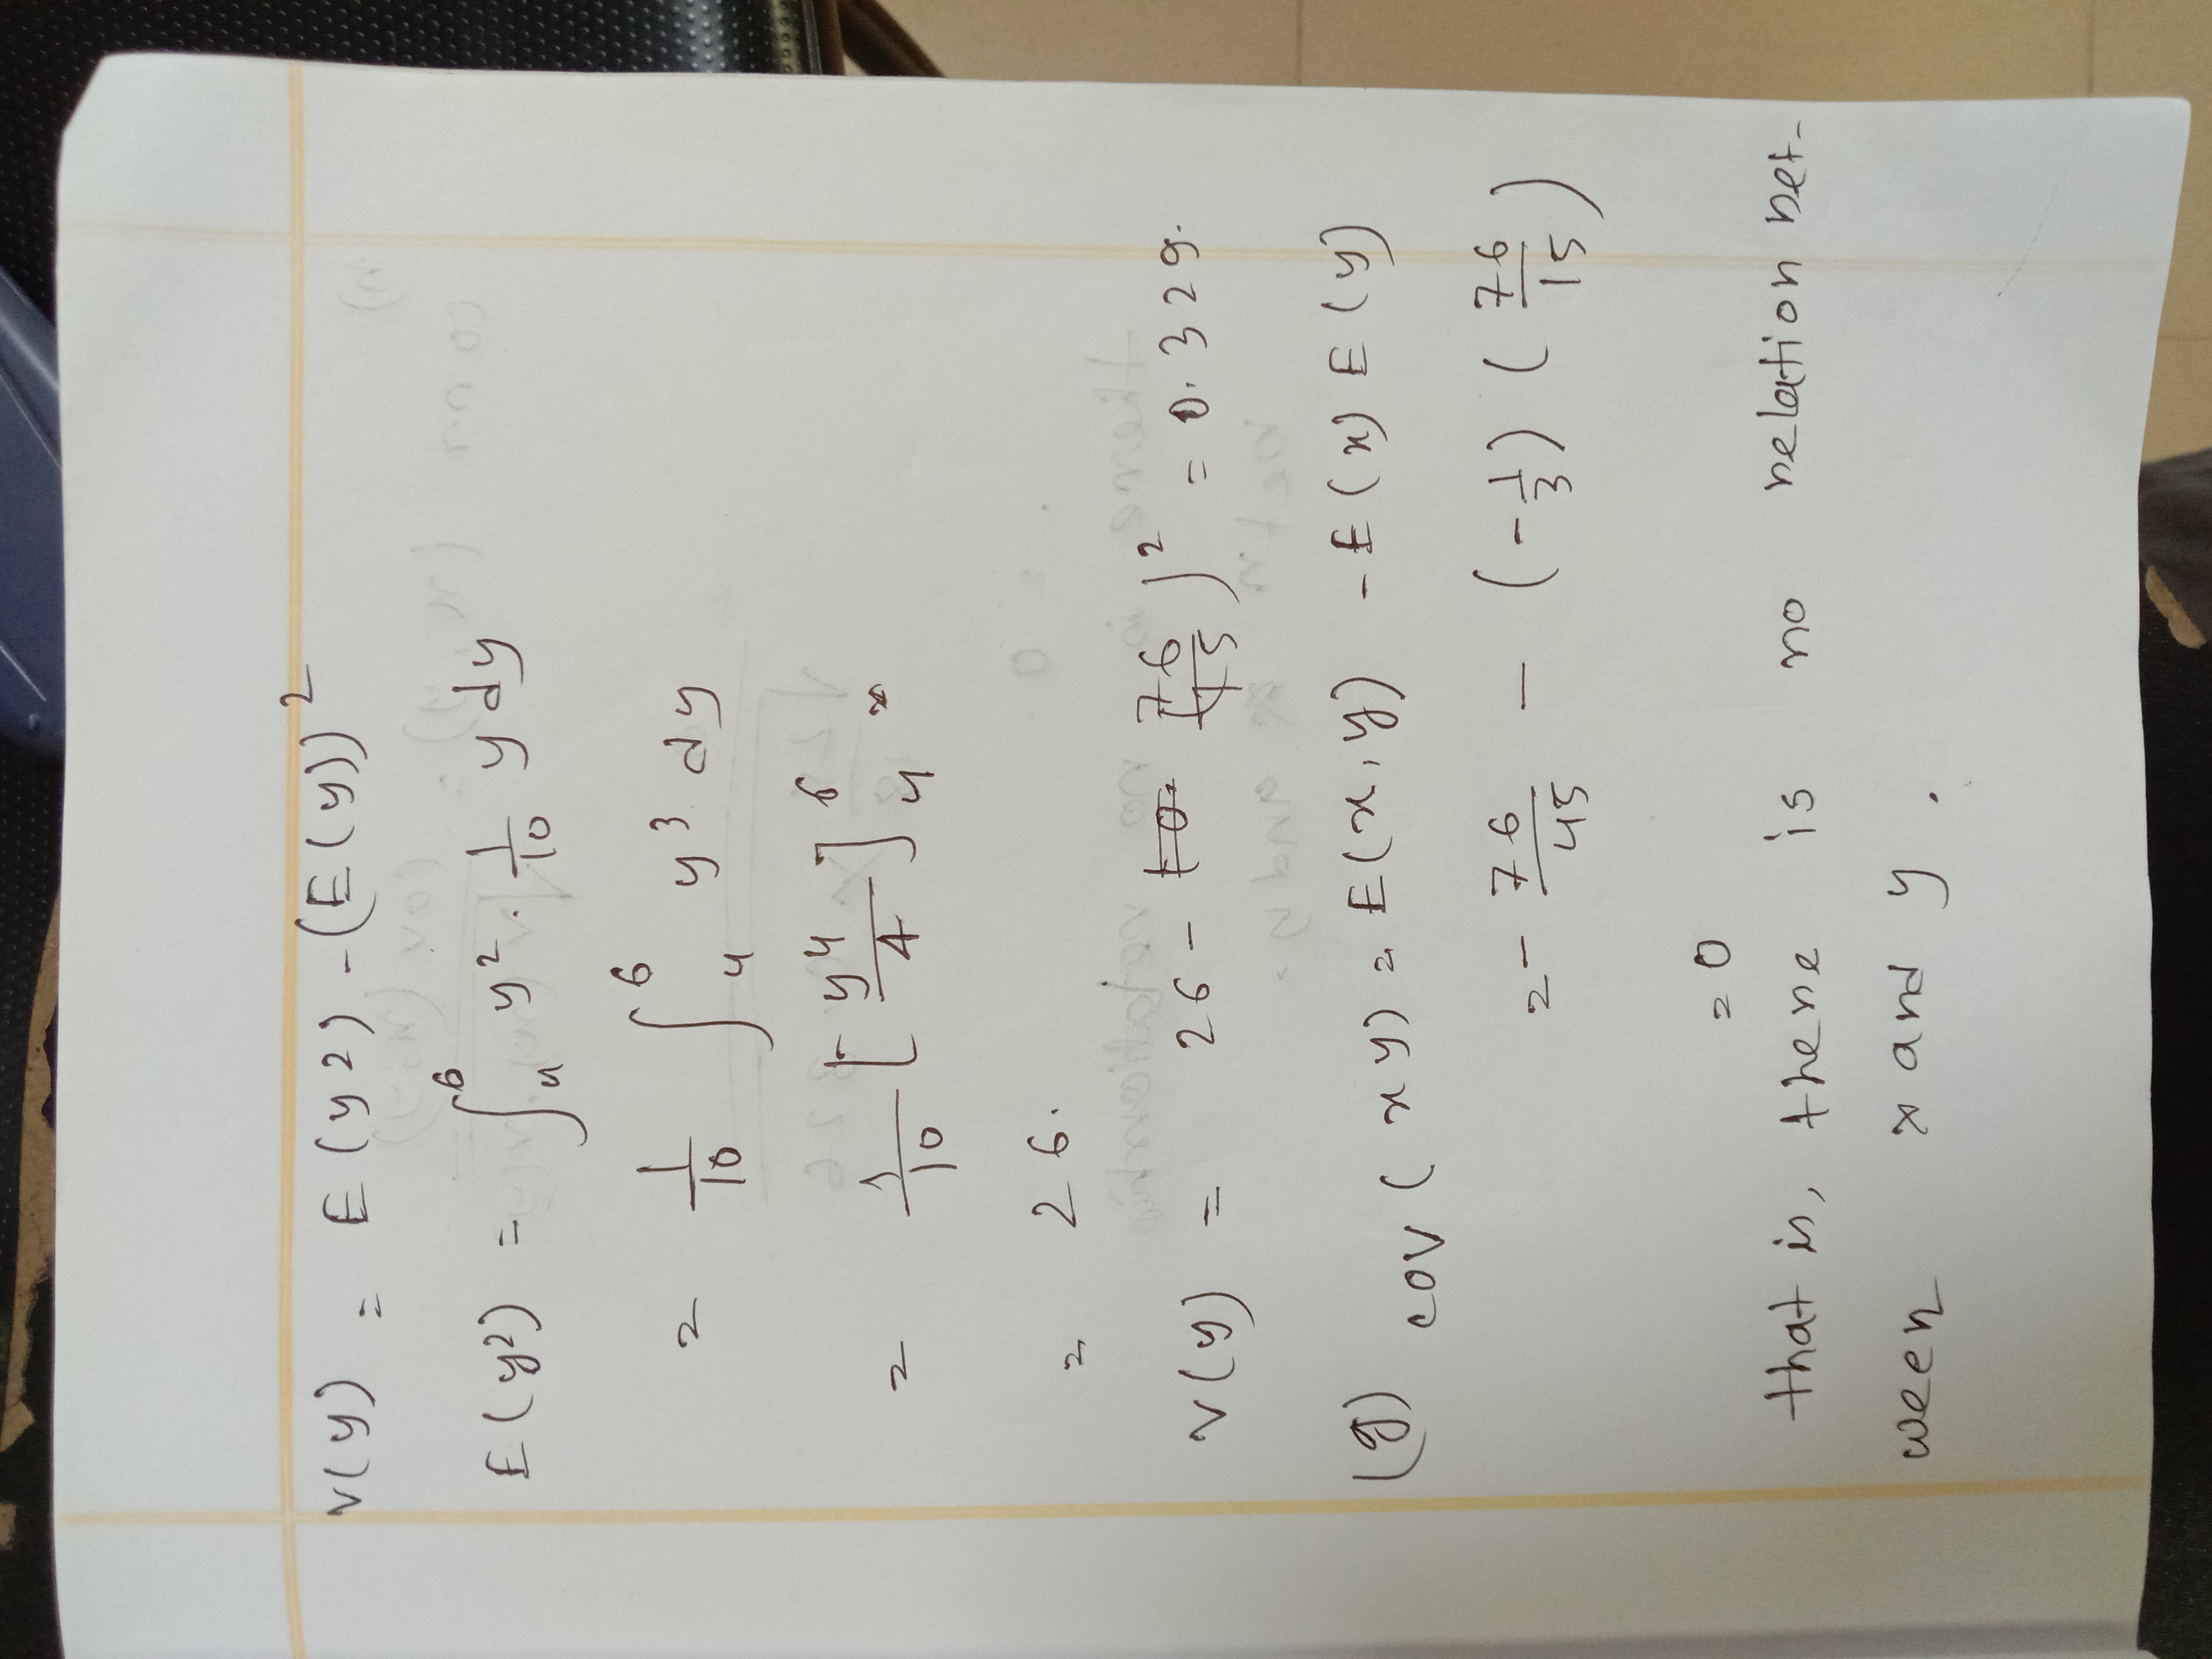 v(y) = E(y2) - (E(y))²
E(y²) = ∫₄⁶ y². 1/10 y dy
= 1/10 ∫₄⁶ y³ dy
= 1/10 [y⁴/4]₄⁶
= 26.
v(y) = 26 - (76/15)² = 0.329.
(g) cov(xy) = E(x,y) - E(x) E(y)
= - 76/45 - (-1/3) (76/15)
= 0
that is, there is no relation bet-
ween x and y.